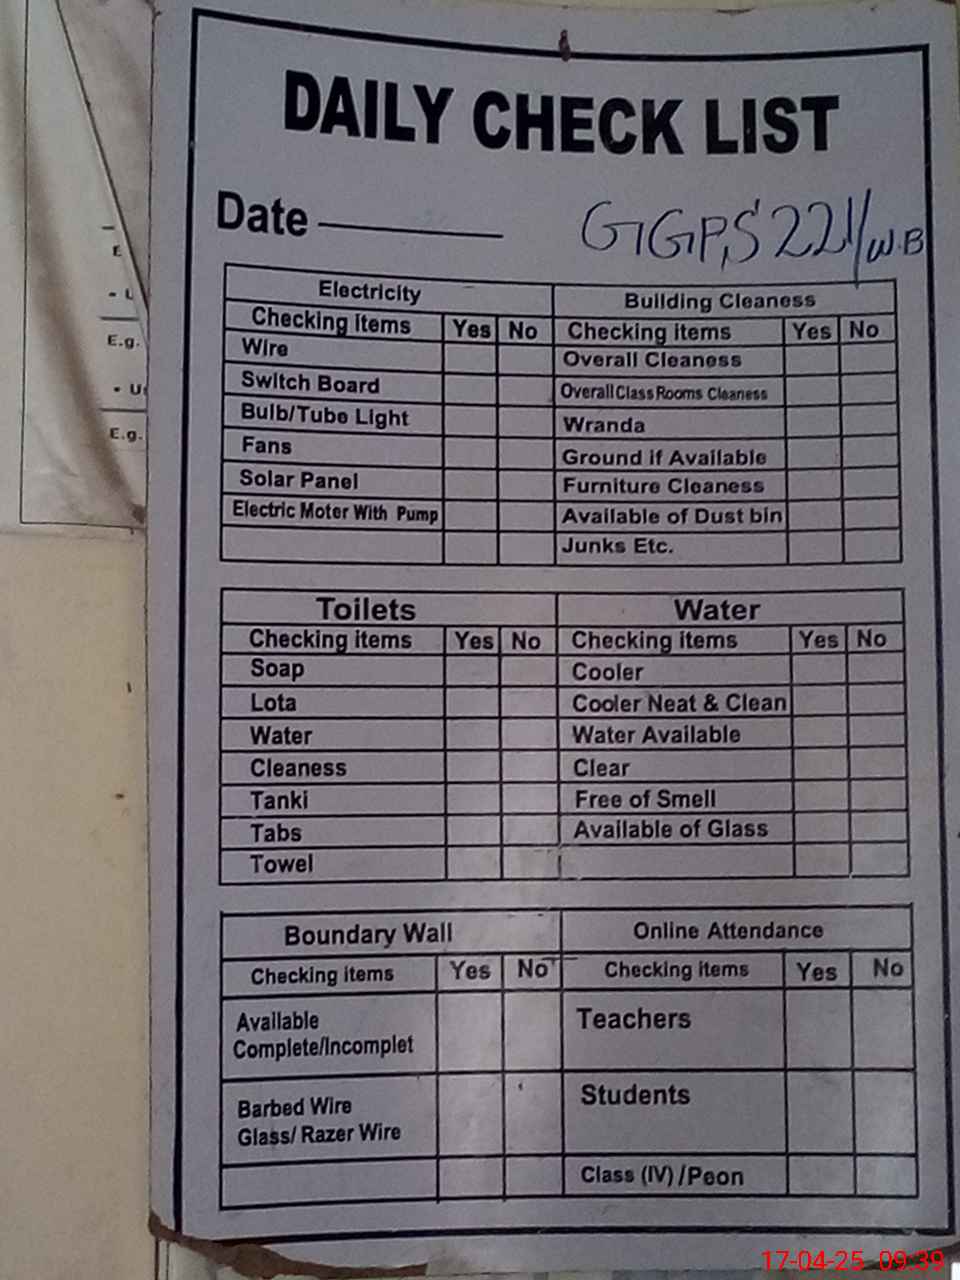 DAILY CHECK LIST
Date
GGPS 221/W.B
Electricity
Checking items Yes No
Wire
Switch Board
Bulb/Tube Light
Fans
Solar Panel
Electric Moter With Pump
Building Cleaness
Checking items Yes No
Overall Cleaness
Overall Class Rooms Cleaness
Wranda
Ground if Available
Furniture Cleaness
Available of Dust bin
Junks Etc.
Toilets
Checking items Yes No
Soap
Lota
Water
Cleaness
Tanki
Tabs
Towel
Water
Checking items Yes No
Cooler
Cooler Neat & Clean
Water Available
Clear
Free of Smell
Available of Glass
Boundary Wall
Checking items Yes No
Available
Complete/Incomplet
Barbed Wire
Glass/ Razer Wire
Online Attendance
Checking items Yes No
Teachers
Students
Class (IV) /Peon
E.g.
E.g.
17-04-25 09:39